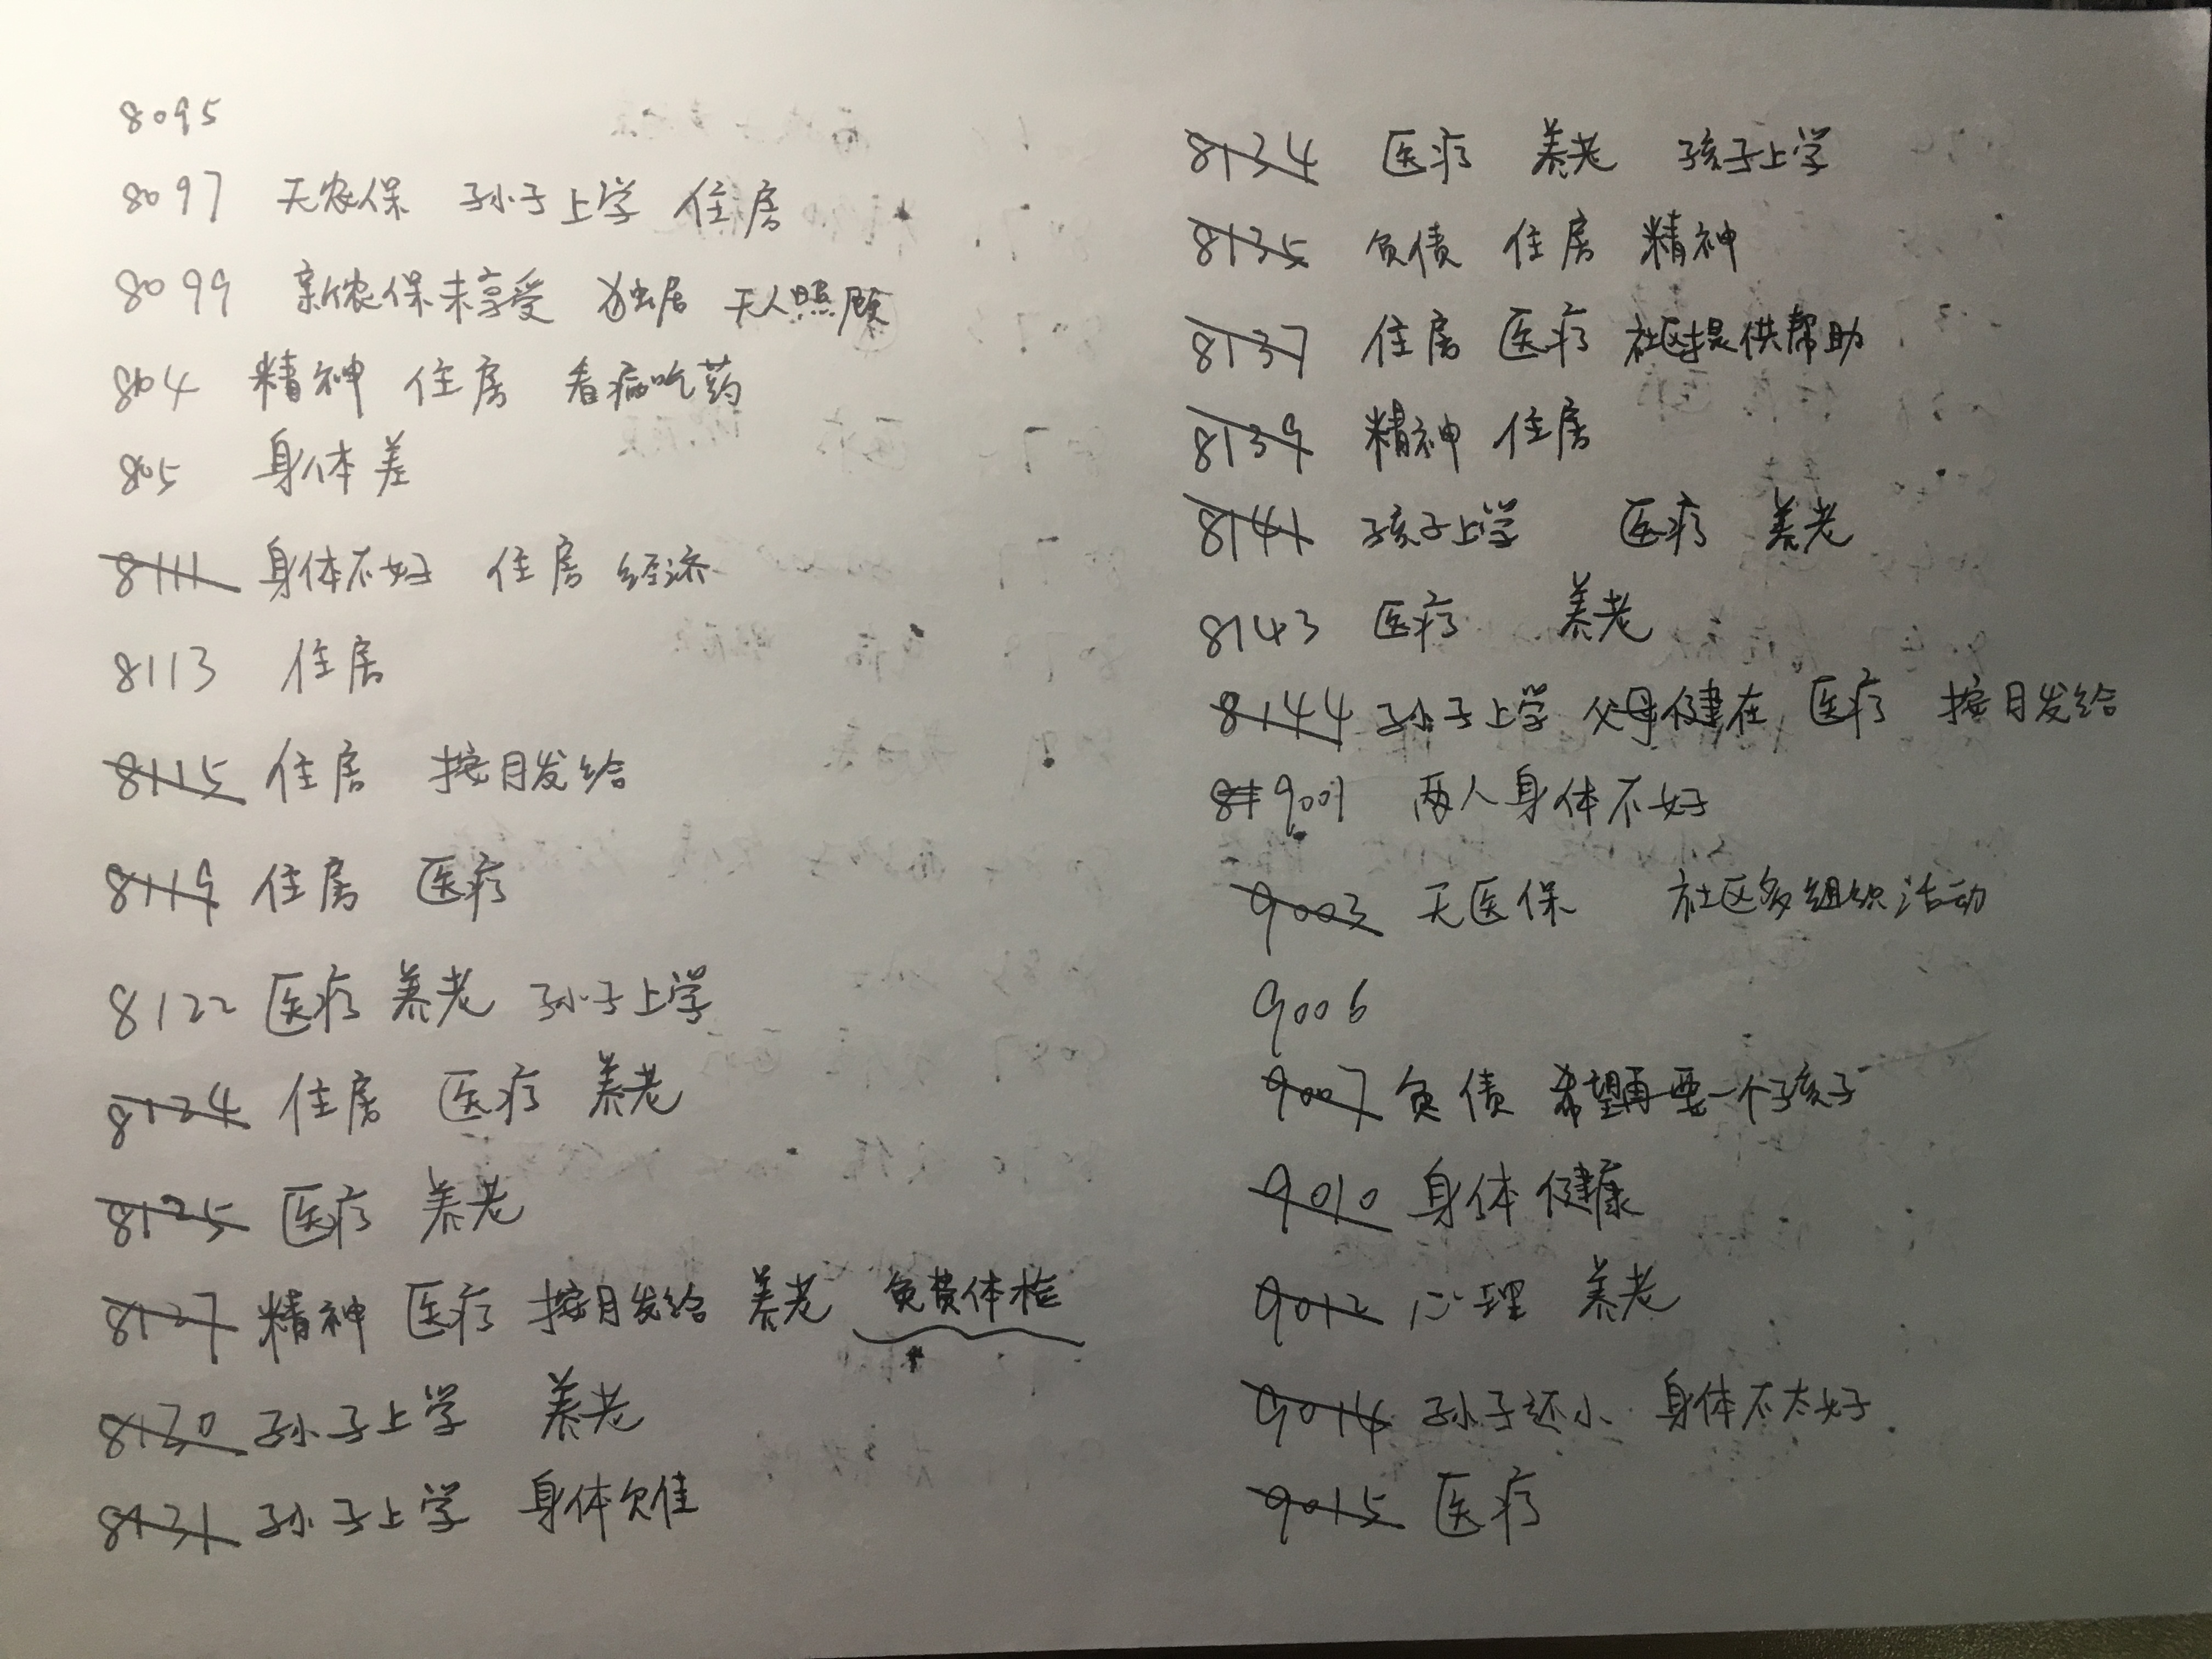 8095
8097 无农保 孙子上学 住房
8099 新农保未享受 独居 无人照顾
8104 精神 住房 看病吃药
8105 身体差
8111 身体不好 住房 经济
8113 住房
8115 住房 按月发给
8119 住房 医疗
8122 医疗 养老 孙子上学
8124 住房 医疗 养老
8125 医疗 养老
8127 精神 医疗 按月发给 养老 免费体检
8130 孙子上学 养老
8131 孙子上学 身体欠佳
8134 医疗 养老 孩子上学
8135 负债 住房 精神
8137 住房 医疗 社区提供帮助
8139 精神 住房
8141 孩子上学 医疗 养老
8143 医疗 养老
8144 孙子上学 父母健在 医疗 按月发给
9001 两人身体不好
9003 无医保 社区多组织活动
9006
9007 负债 希望再要一个孩子
9010 身体健康
9012 心理 养老
9014 孙子还小 身体不太好
9015 医疗